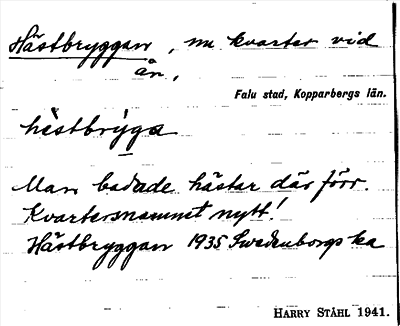 Hästbryggan, nu kvarter vid
ån,
Falu stad, Kopparbergs län.
hèstbrýga
Man badade hästar där förr.
Kvartersnamnet nytt!
Hästbryggan 1935 Swedenborgs ka
HARRY STÅHL 1941.